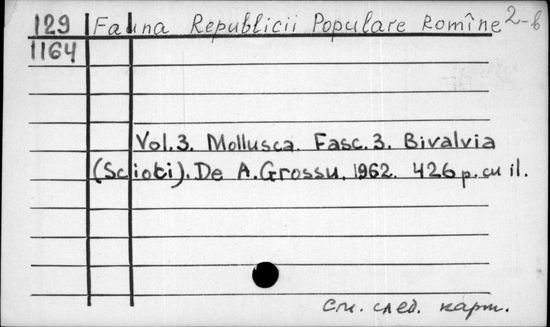 129 Fauna Republicii Populare Romîne 2-в
1164
Vol.3. Mollusca. Fasc.3. Bivalvia
(Scioti). De A.Grossu. 1962. 426 p. cu il.
См. след. карт.